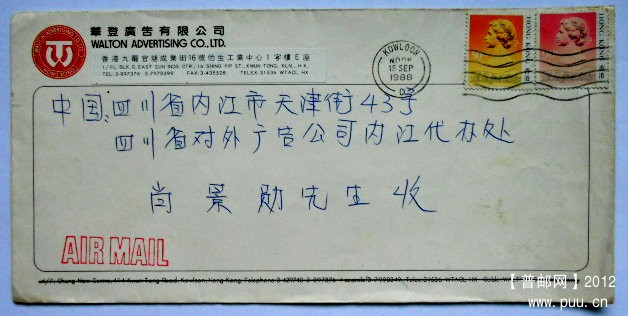 華登廣告有限公司
WALTON ADVERTISING CO., LTD.
香港九龍官塘成業街16號怡生工業中心1字樓E座
1/FL, BLK. E, EAST SUN INDS. CTR., 16 SHING YIP ST., KWUN TONG, KLN., H.K.
TEL: 3-897376 3-7970399 FAX: 3-435528 TELEX: 31536 WTAD, HX
KOWLOON
NOON
15 SEP
1988
HONG KONG 香港
HONG KONG 香港
中国:四川省内江市天津街43号
四川省对外广告公司内江代办处
尚景勋先生收
AIR MAIL
【普邮网】2012
www.puu.cn